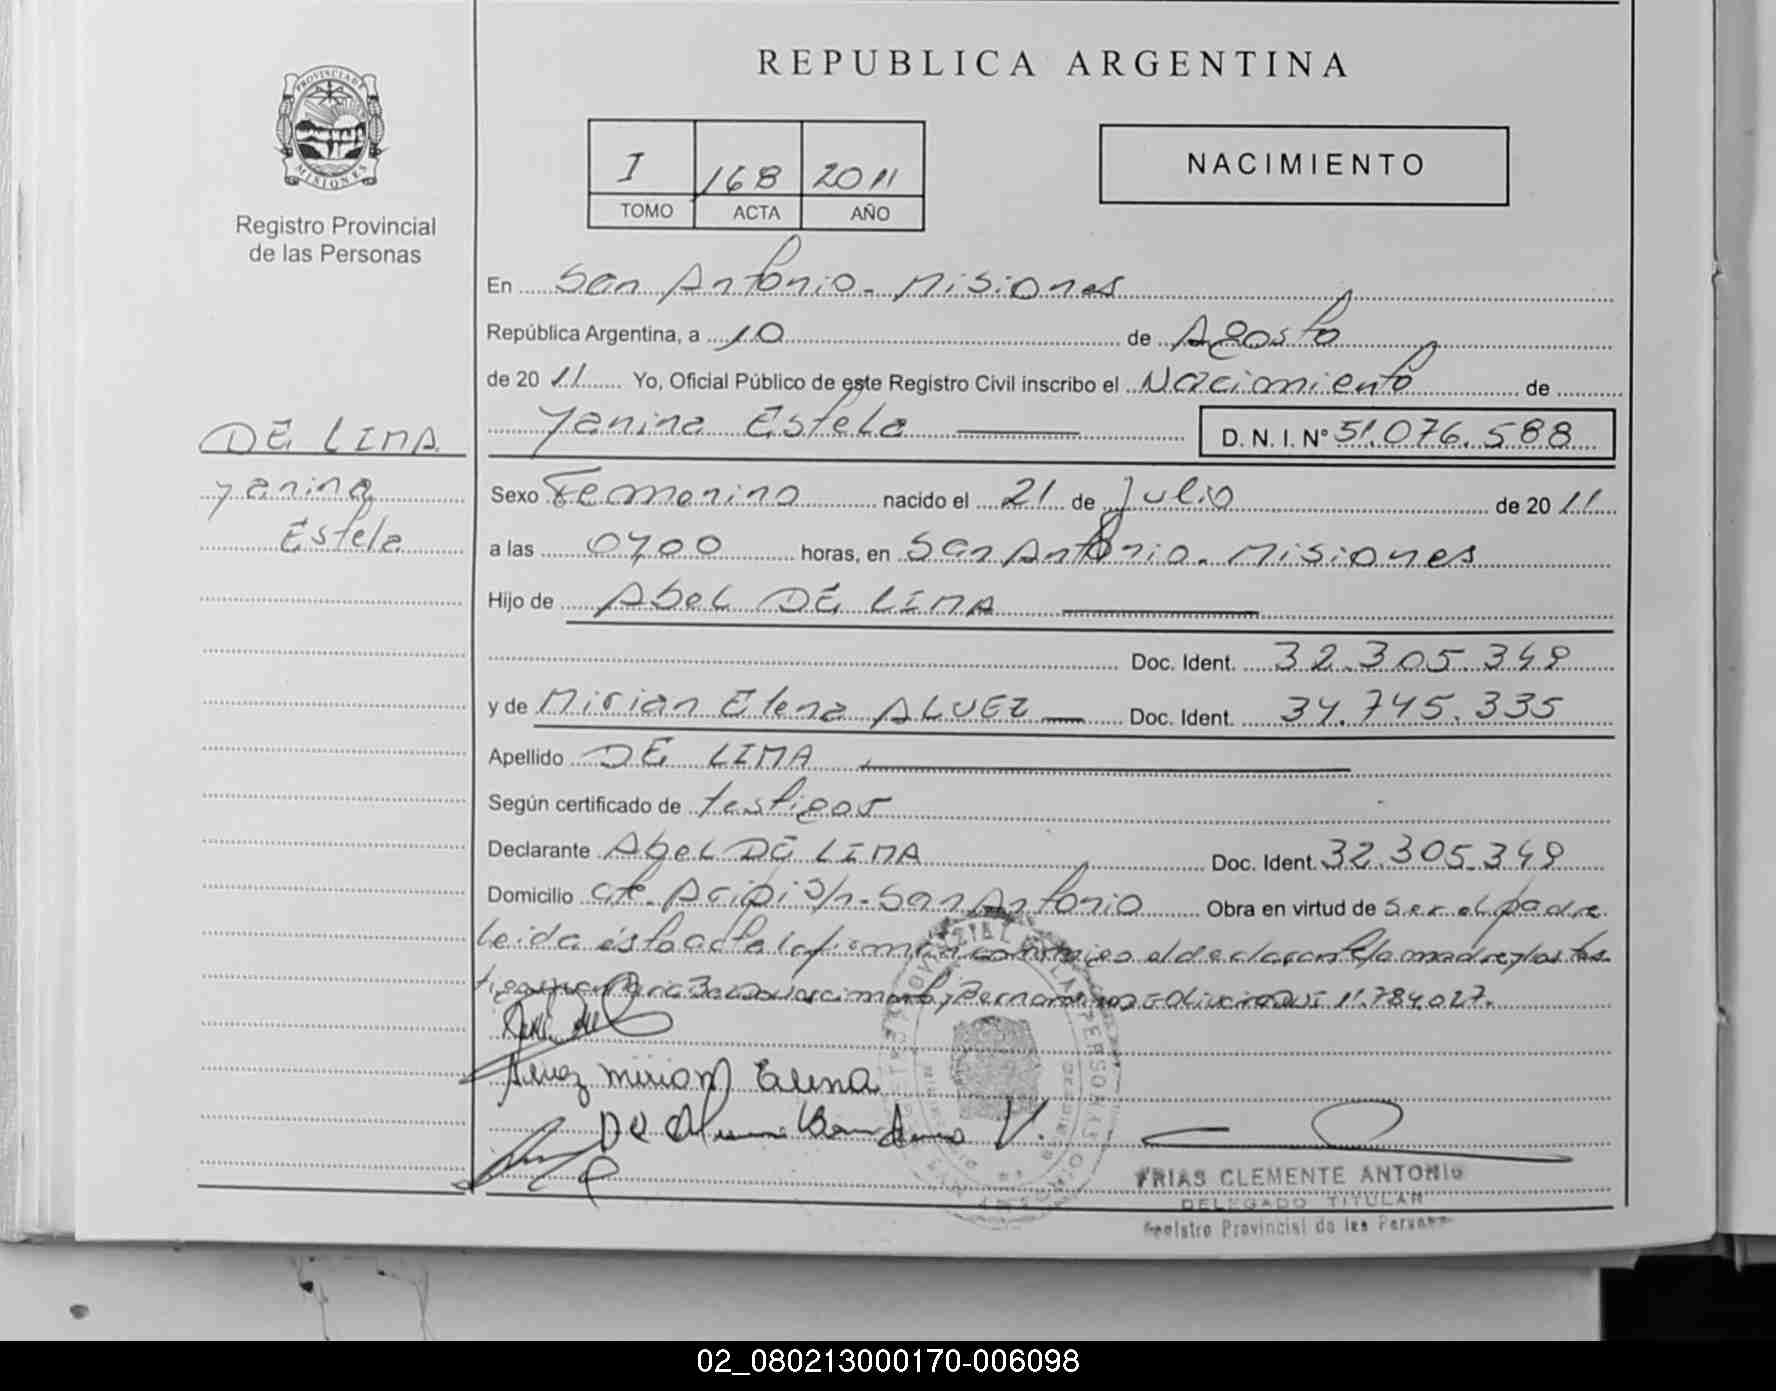 REPUBLICA ARGENTINA
PROVINCIA DE
MISIONES
Registro Provincial
de las Personas
I 168 2011
TOMO ACTA AÑO
NACIMIENTO
En San Antonio - Misiones
República Argentina, a 10 de Agosto
de 2011 Yo, Oficial Público de este Registro Civil inscribo el Nacimiento de
Yanina Estela D. N. I. Nº 51.076.588
DE LIMA
Yanina
Estela
Sexo Femenino nacido el 21 de Julio de 2011
a las 0700 horas, en San Antonio - Misiones
Hijo de Abel DE LIMA
Doc. Ident. 32.305.349
y de Mirian Elena ALVEZ Doc. Ident. 34.745.335
Apellido DE LIMA
Según certificado de testigos
Declarante Abel DE LIMA Doc. Ident. 32.305.349
Domicilio S/n - San Antonio Obra en virtud de ser el padre
leida ésta acta la firman conmigo el declarante la madre y los tes
tigos 11.784.027.
Alvez Mirian Elena
FRIAS CLEMENTE ANTONIO
DELEGADO TITULAR
Registro Provincial de las Personas
02_080213000170-006098